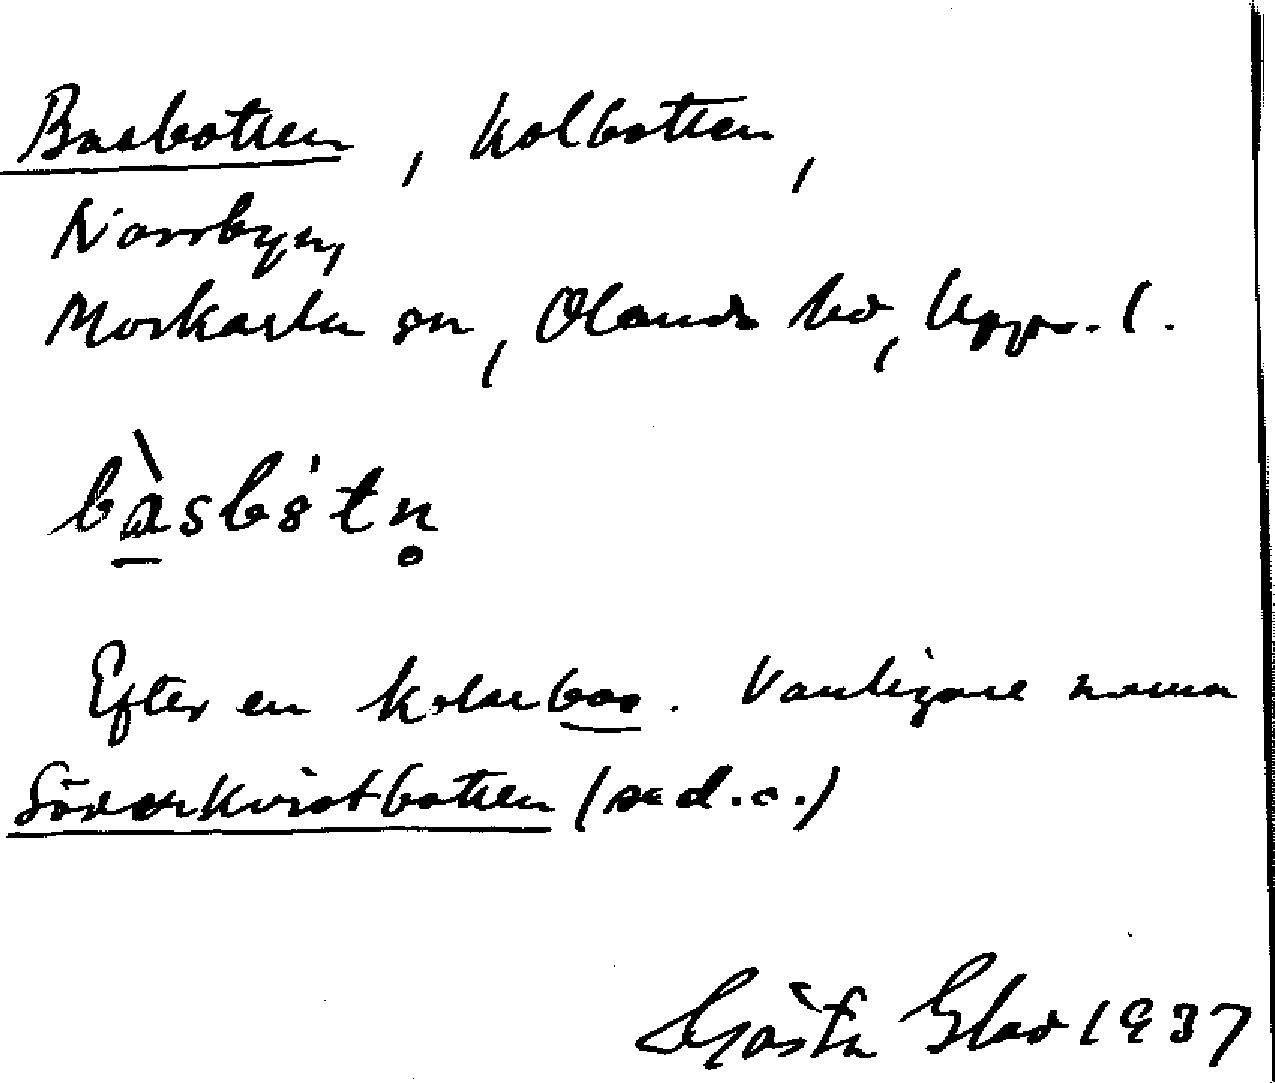 Basbotten, kolbotten,
Norrbyn,
Morkarla sn, Olands hd, Upps. l.
bàsbòtn̥
Efter en kolarbas. Vanligare namn
Söderkvistbotten (se d.o.)
Gösta Glad 1937